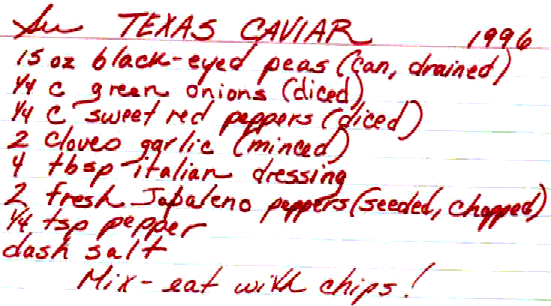 Su TEXAS CAVIAR 1996
15 oz black-eyed peas (can, drained)
1/4 c green onions (diced)
1/4 c sweet red peppers (diced)
2 cloves garlic (minced)
4 tbsp italian dressing
2 fresh Jabaleno peppers (seeded, chopped)
1/4 tsp pepper
dash salt
Mix - eat with chips!